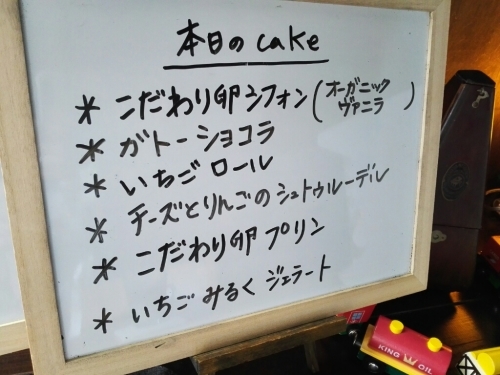 本日のcake
* こだわり卵シフォン(オーガニック ヴァニラ)
* ガトーショコラ
* いちごロール
* チーズとりんごのシュトゥルーデル
* こだわり卵プリン
* いちごみるくジェラート
KING OIL